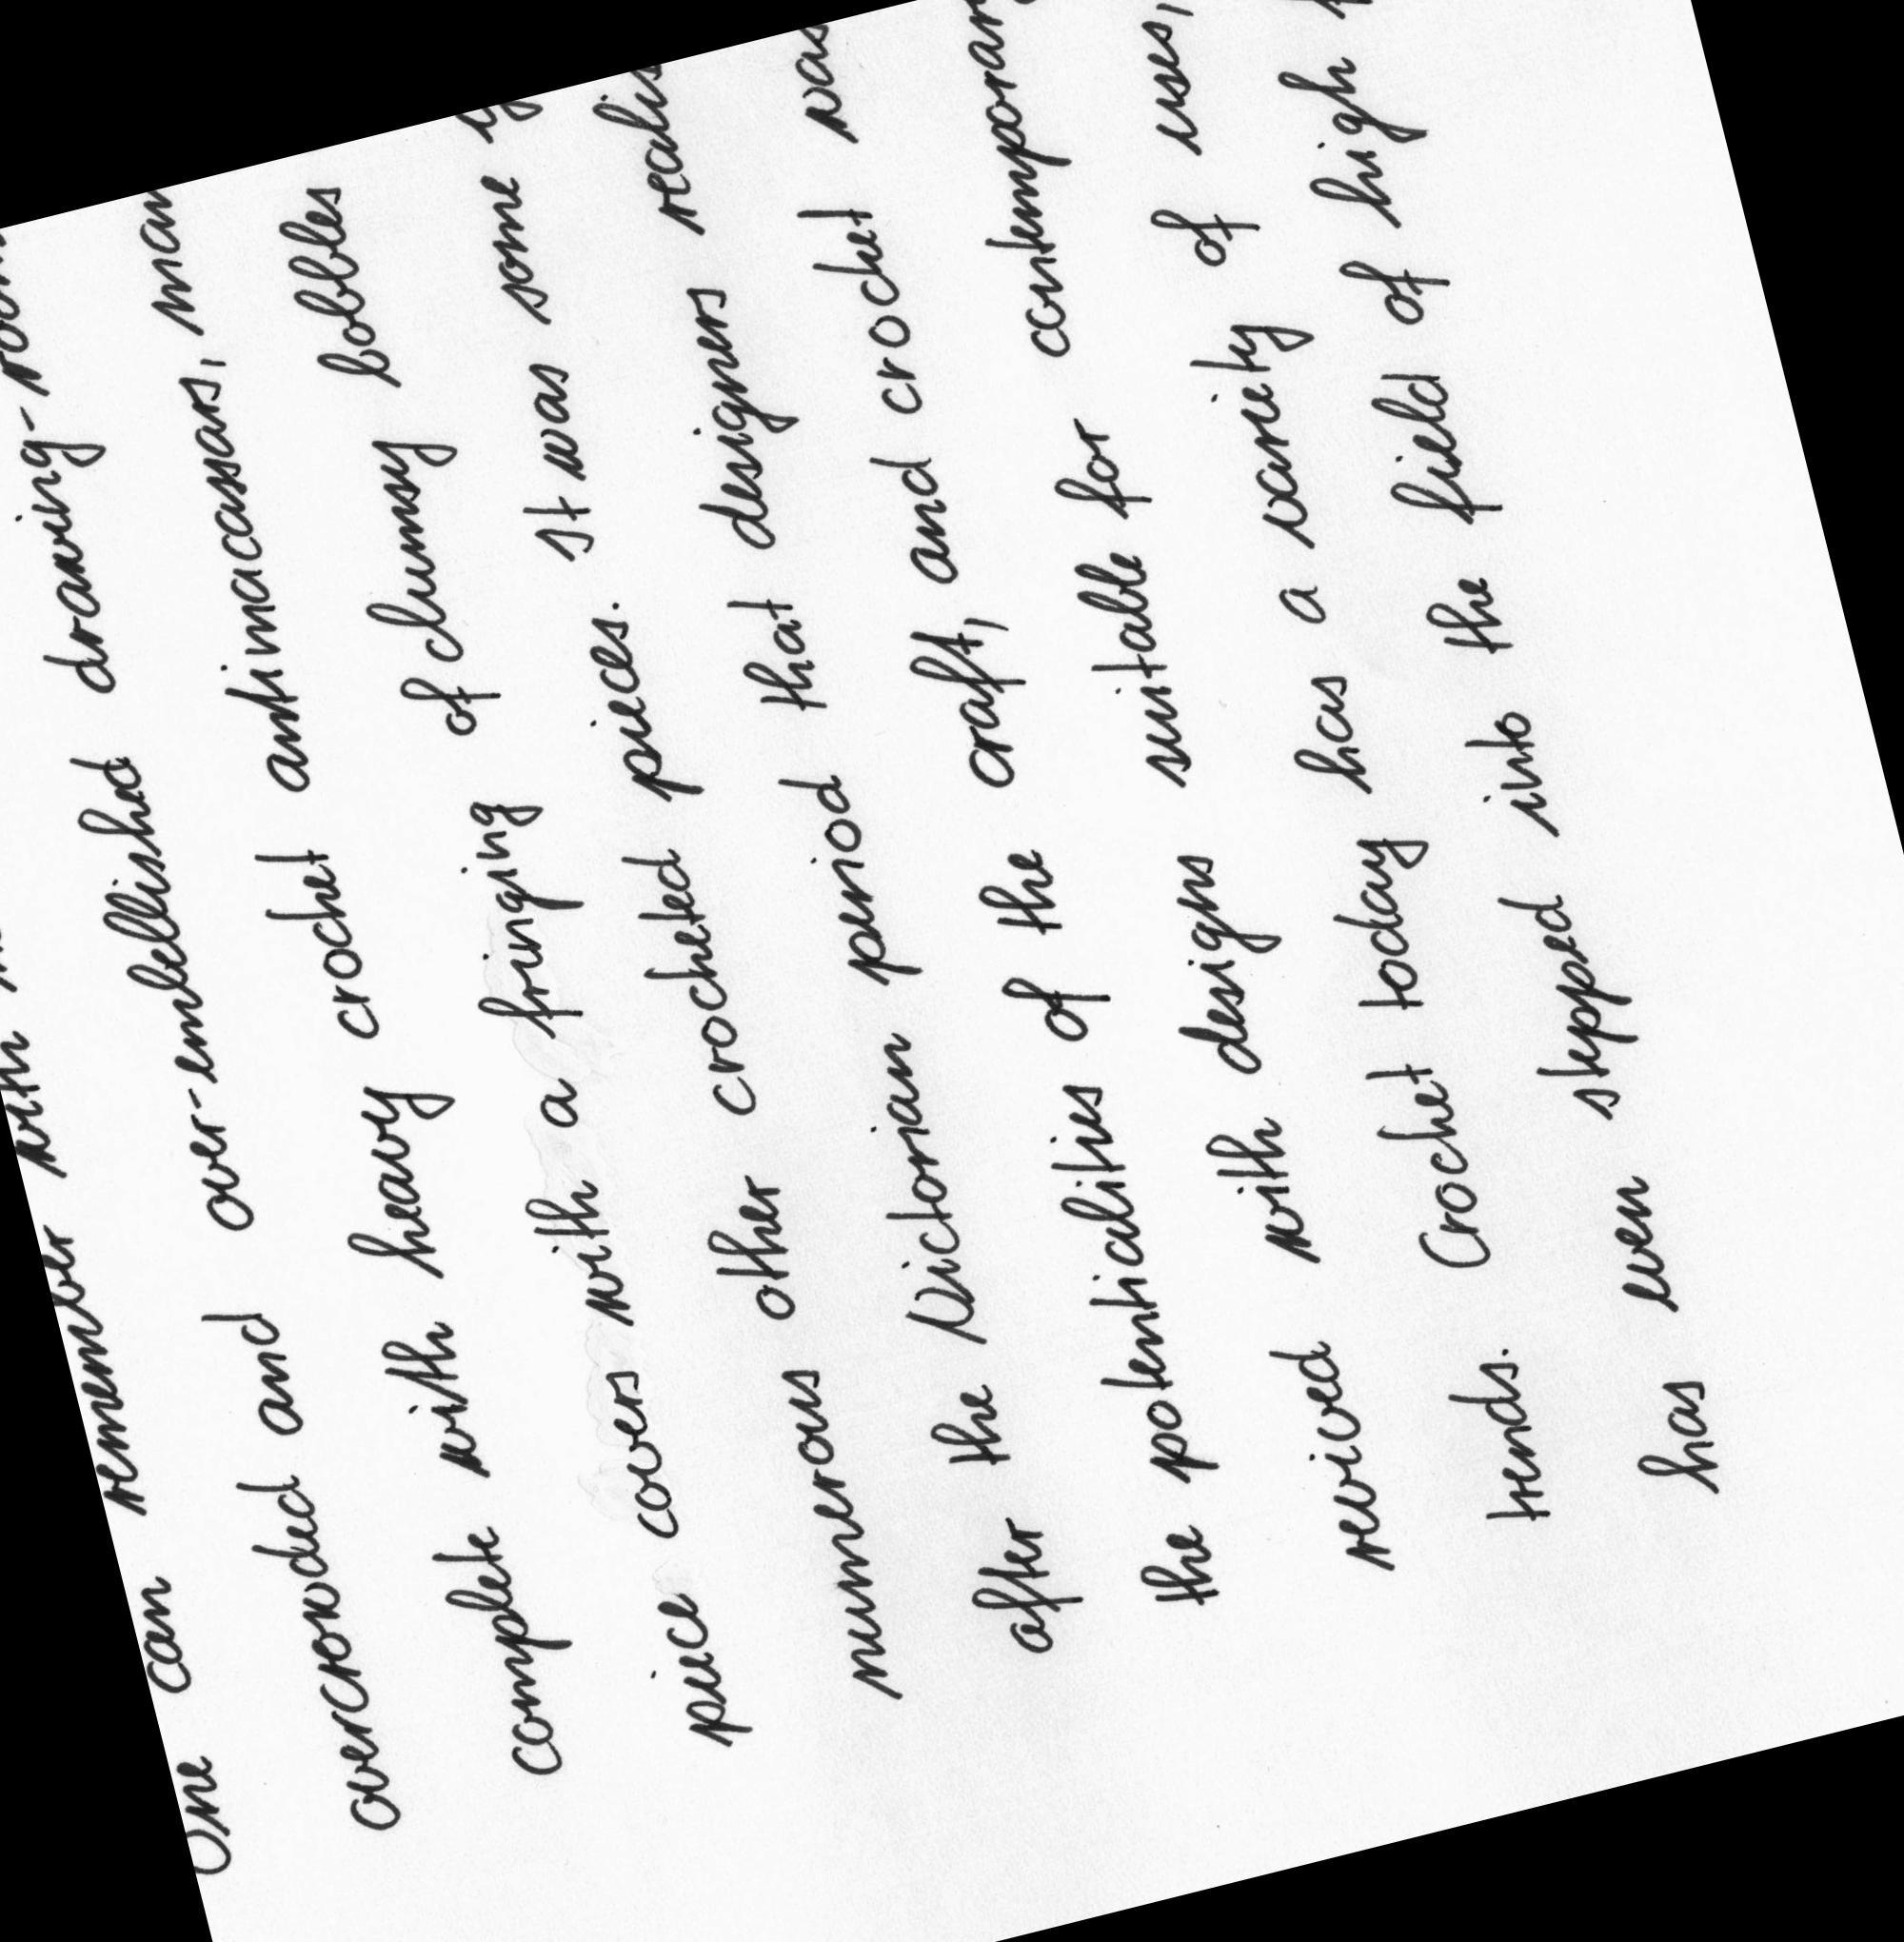 One can remember with
overcrowded and over-embellished drawing-room
complete with heavy crochet antimacassars, man
piece covers with a fringing of clumsy bobbles
numerous other crocheted pieces. It was some y
after the Victorian period that designers realis
the potentialities of the craft, and crochet was
revived with designs suitable for contemporary
trends. Crochet today has a variety of uses,
has even stepped into the field of high